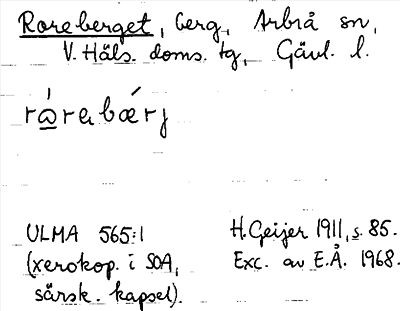 Roreberget, berg, Arbrå sn,
V. Häls. doms. tg, Gävl. l.
ràrebǽrj
ULMA 565:1
(xerokop. i SOA,
särsk. kapsel).
H. Geijer 1911, s. 85.
Exc. av E.Å. 1968.